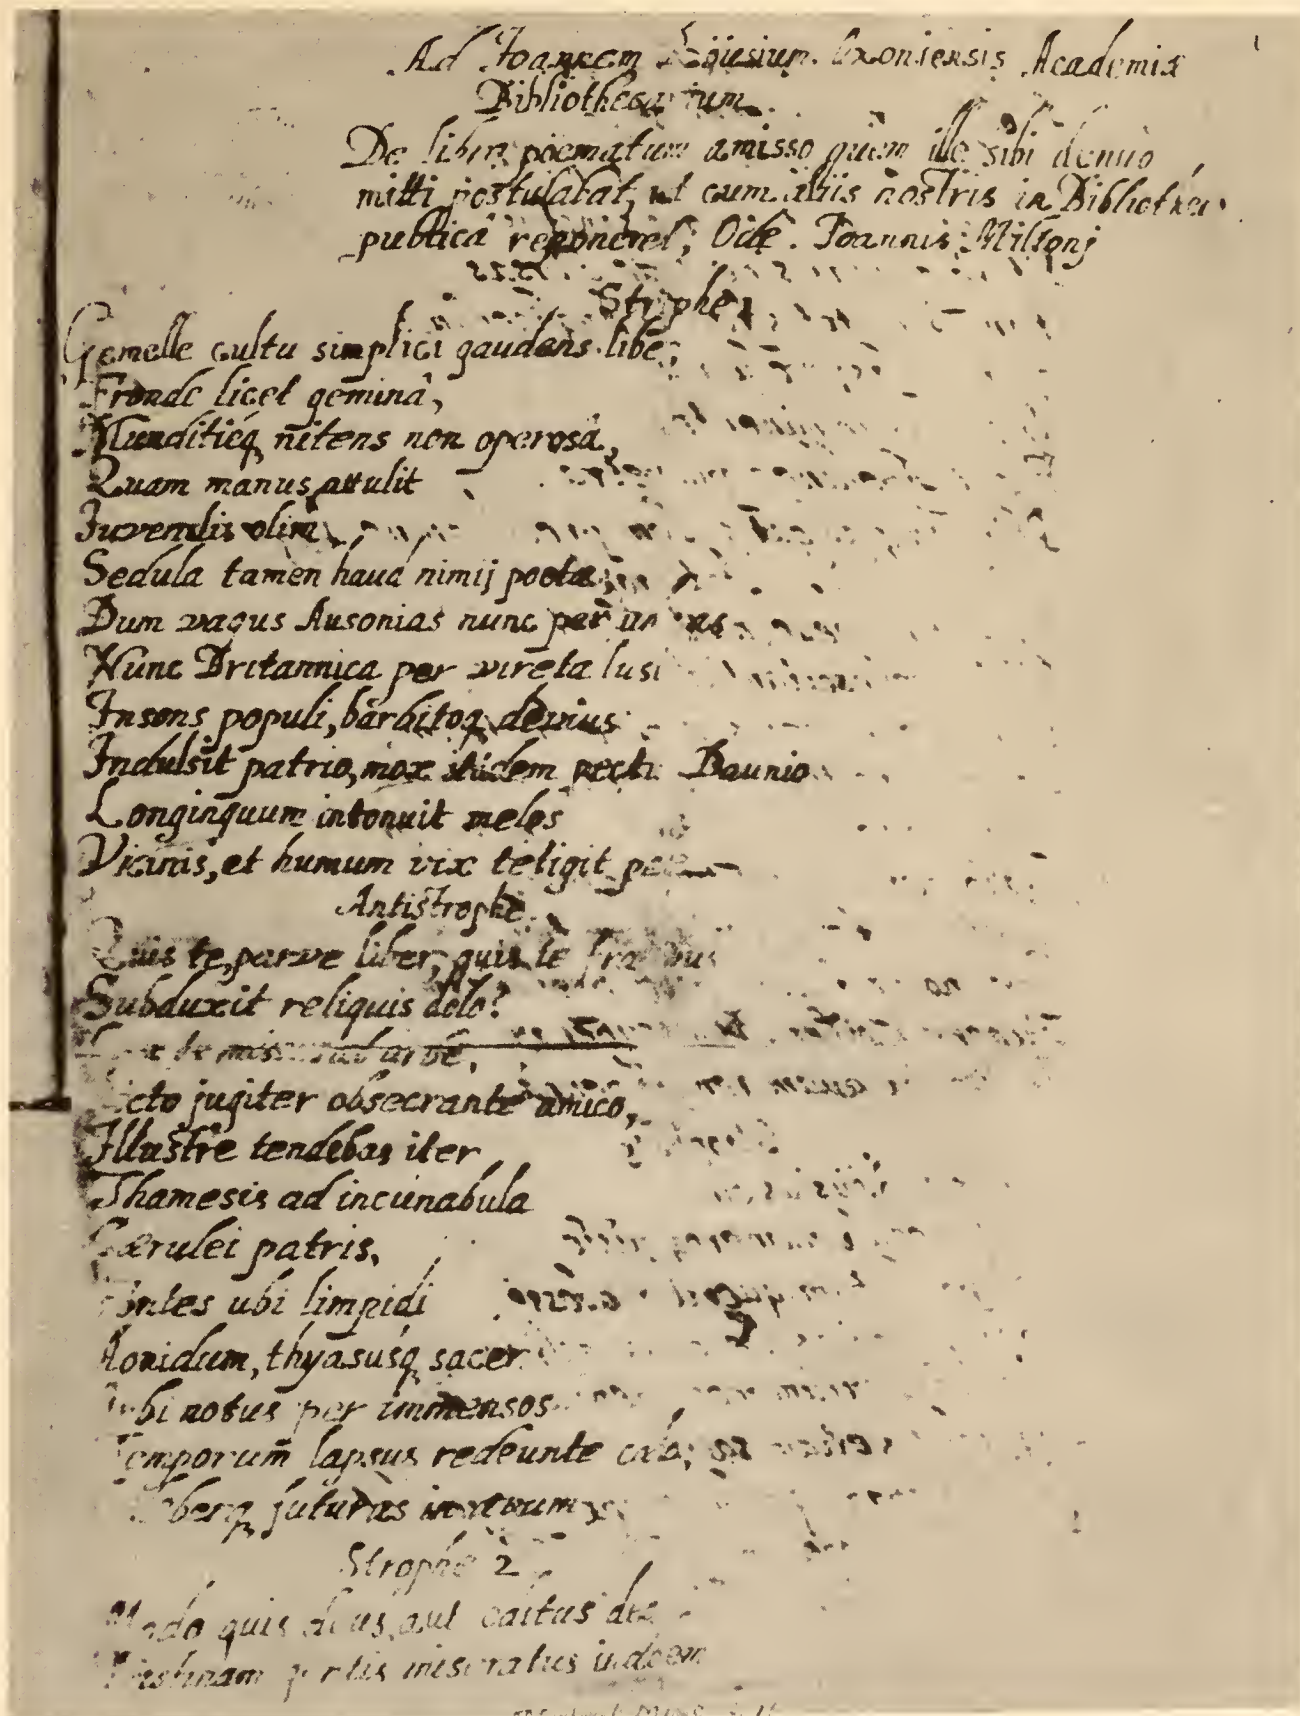 Ad Joannem Roüsium Oxoniensis Academiæ
Bibliothecarium.
De libro poematum amisso quem ille sibi denuo
mitti postulabat, ut cum aliis nostris in Bibliothecâ
publicâ reponeret, Ode. Joannis Miltonj
Strophe 1
Gemelle cultu simplici gaudens liber,
Fronde licet geminâ,
Munditieq nitens non operosâ,
Quam manus attulit
Juvenilis olim
Sedula tamen haud nimij poetæ
Dum vagus Ausonias nunc per umbras
Nunc Britannica per vireta lusit
Insons populi, barbitoq devius
Indulsit patrio, mox itidem pectine Daunio
Longinquum intonuit melos
Vicinis, et humum vix tetigit pede
Antistrophe
Quis te, parve liber, quis te fratribus
Subduxit reliquis dolo?
missus ab urbe,
Docto jugiter obsecrante amico,
Illustre tendebas iter
Thamesis ad incunabula
Cærulei patris,
Fontes ubi limpidi
Aonidum, thyasusq sacer
Orbi notus per immensos
Temporum lapsus redeunte cælo;
Celeberq futurus in ævum;
Strophe 2
Modo quis deus, aut editus deo
Pristinam gentis miseratus indolem